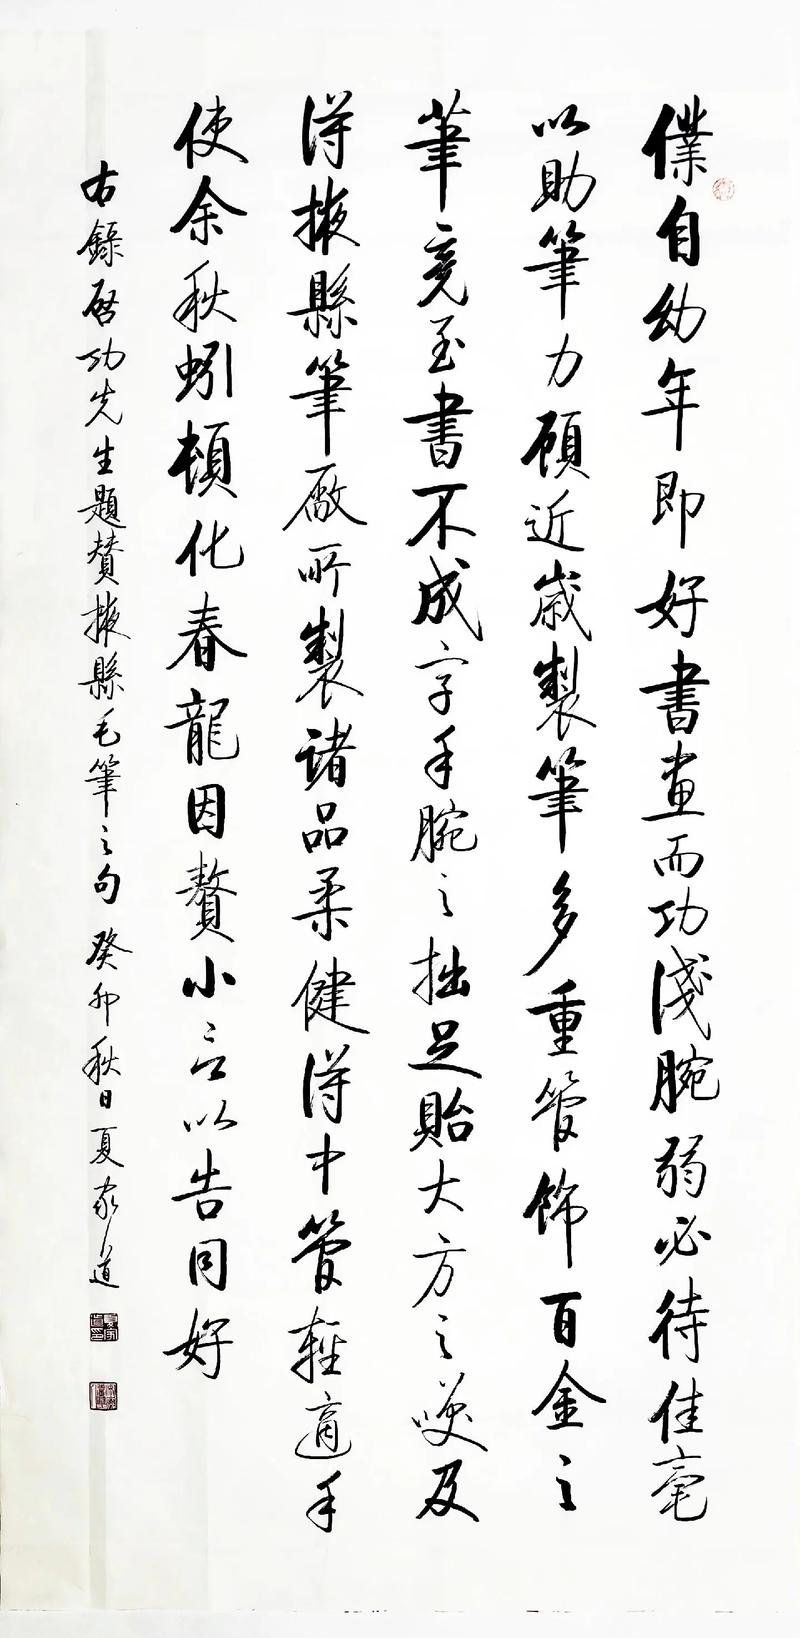 僕自幼年即好書畫而功淺腕弱必待佳毫
以助筆力顧近歲製筆多重管飾百金之
筆竞至書不成字手腕之拙足貽大方之唉及
得掖縣筆廠所製諸品柔健得中管輕適手
使余秋蚓頓化春龍因贅小言以告同好
右錄啓功先生題贊掖縣毛筆之句 癸卯秋日夏家道